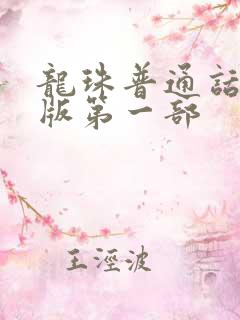 龍珠普通話
版第一部
王溼波